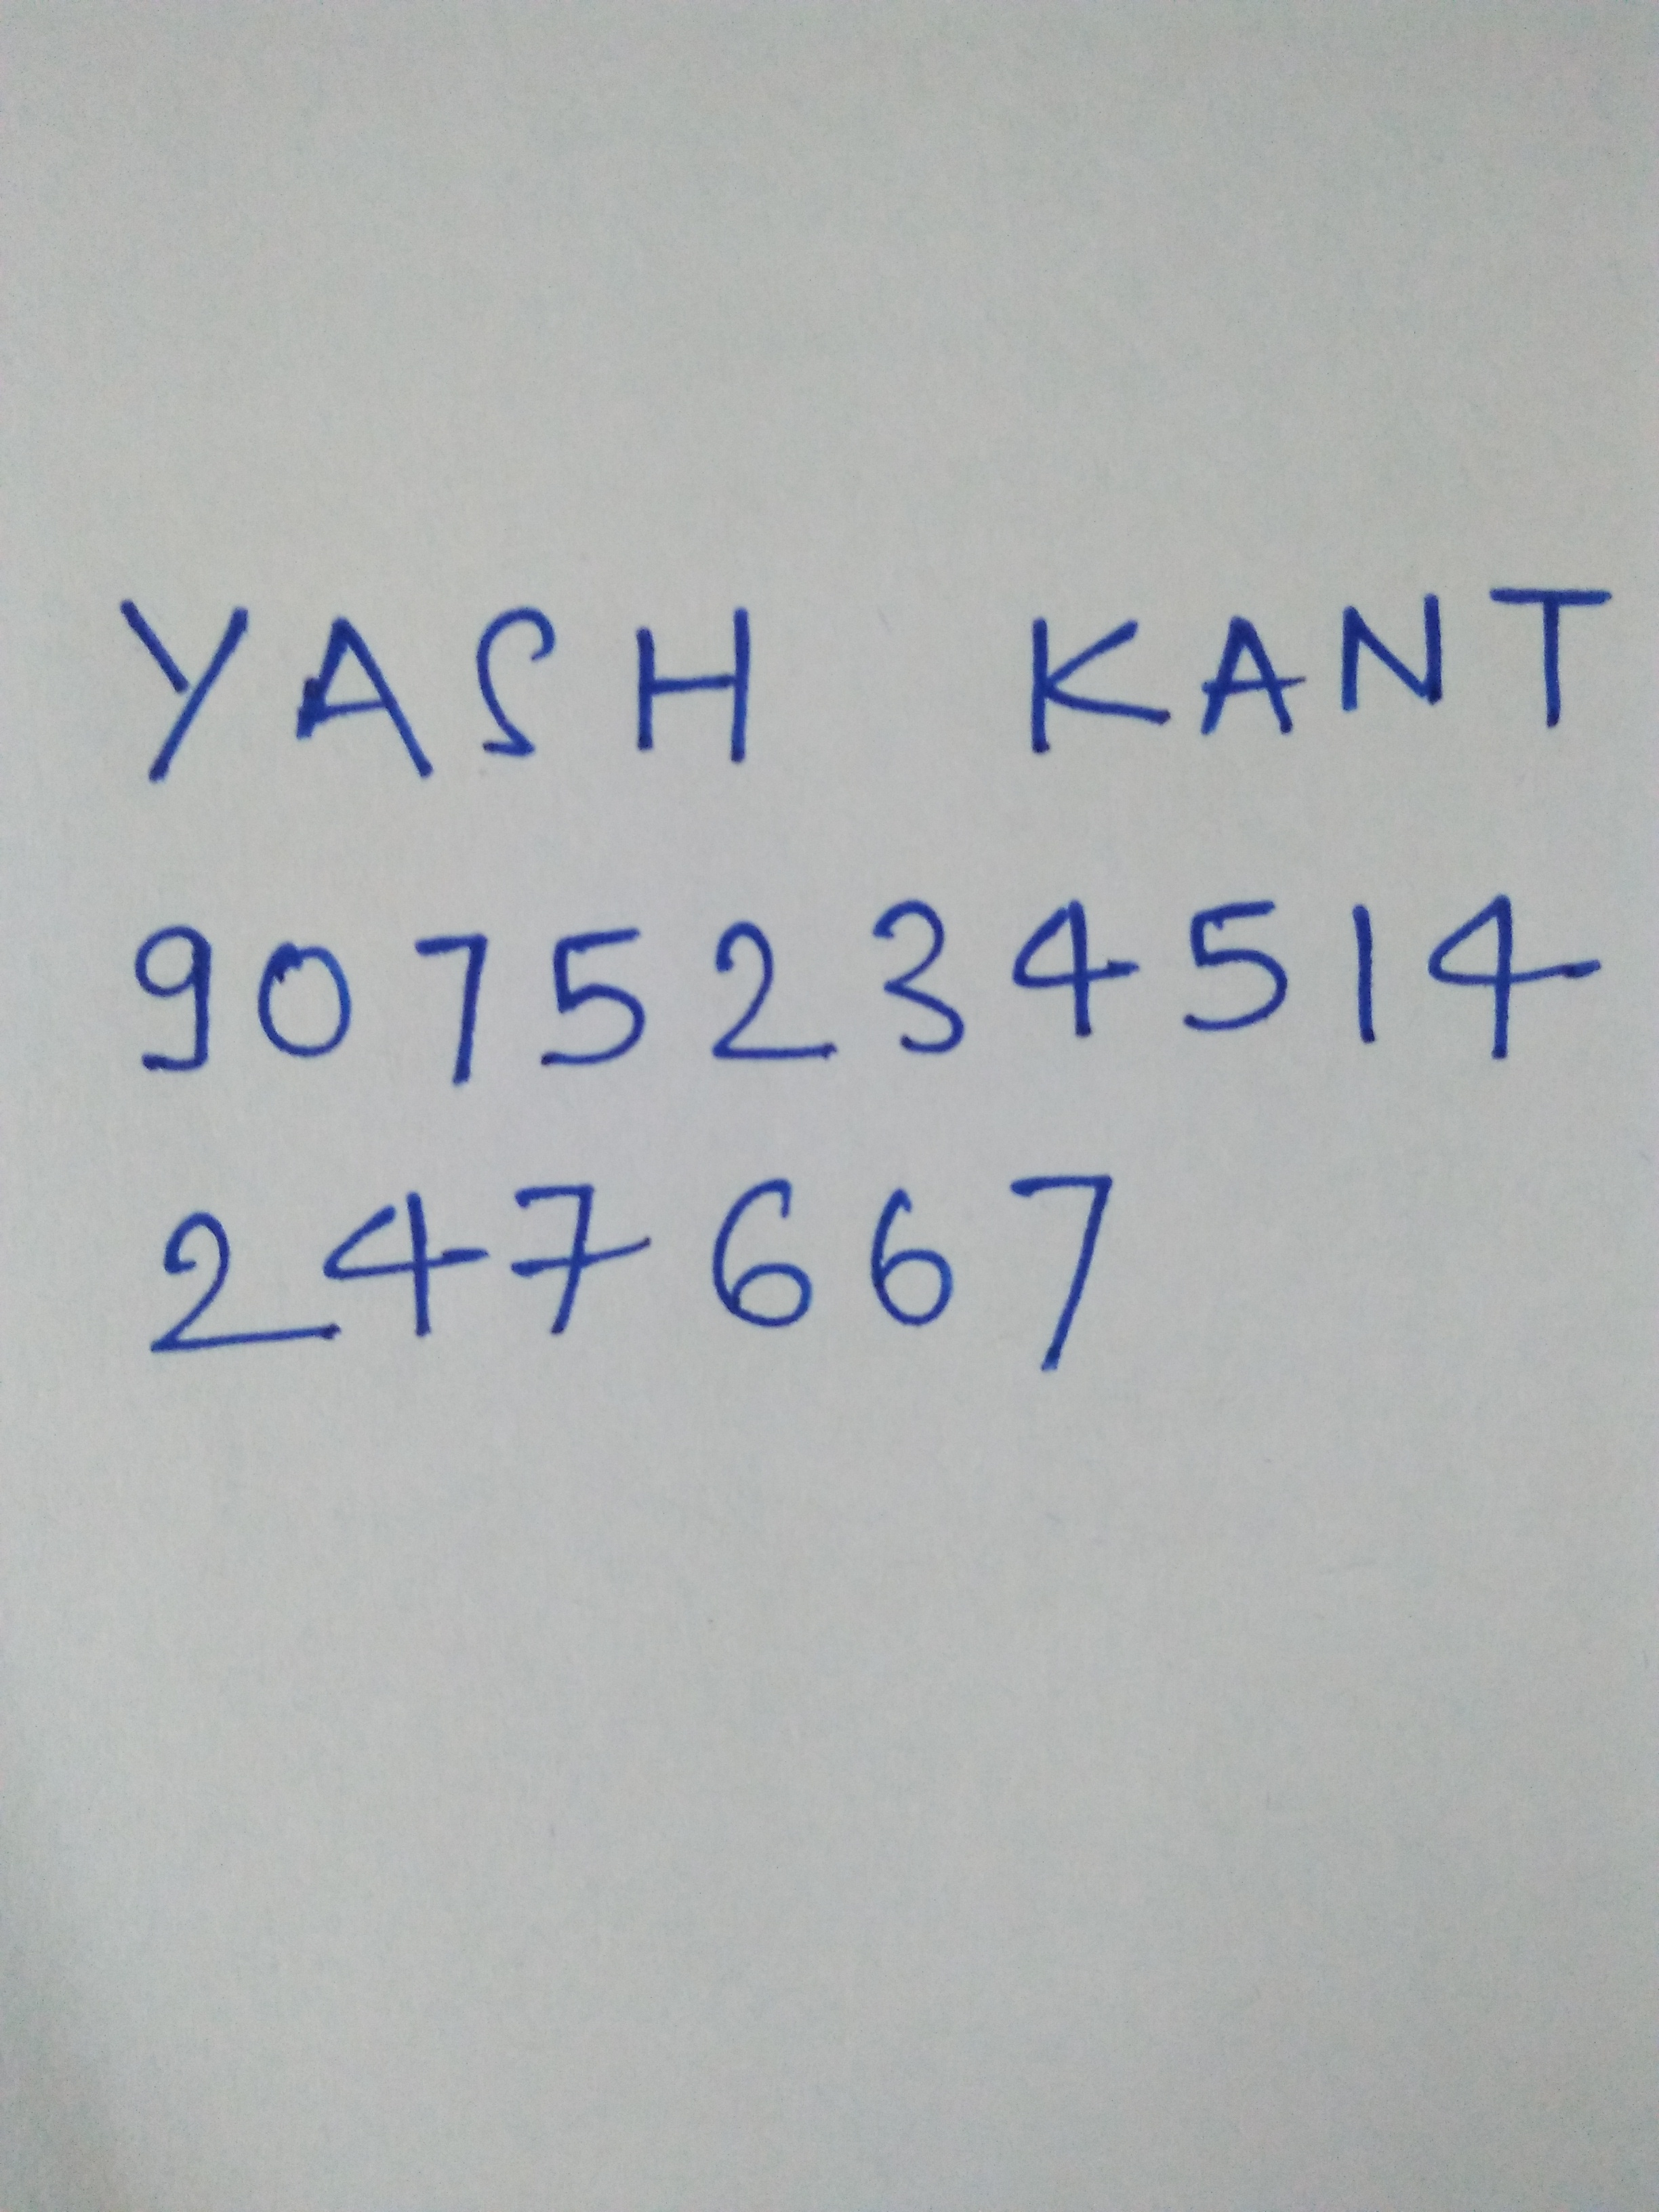 YASH KANT
9075234514
247667